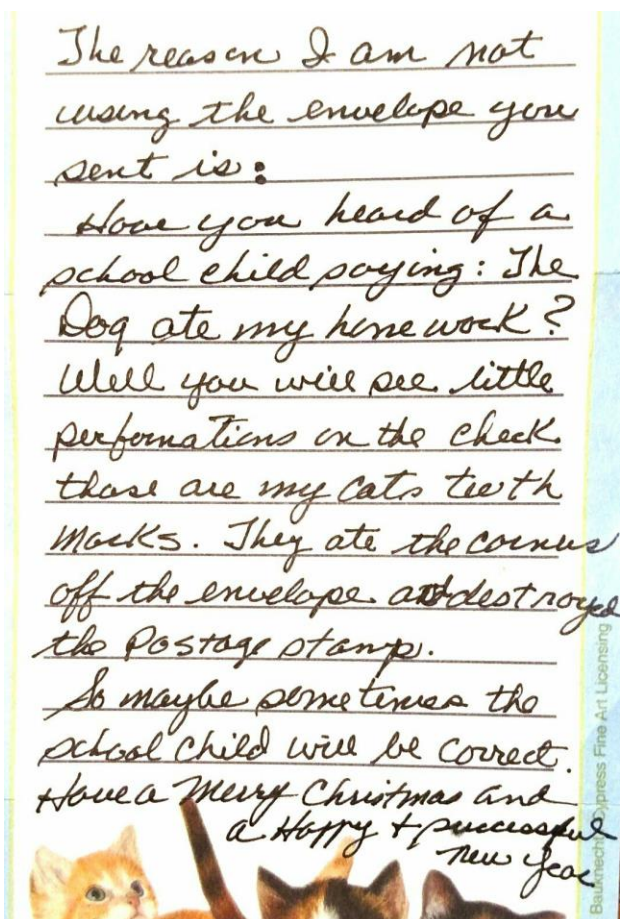 The reason I am not
using the envelope you
sent is:
Have you heard of a
school child saying: The
Dog ate my homework?
Well you will see little
perfornations on the check.
those are my cats teeth
marks. They ate the corners
off the envelope and destroyed
the Postage stamp.
So maybe sometimes the
school child will be correct.
Have a Merry Christmas and
a Happy + successful
new year
Bauknecht Cypress Fine Art Licensing